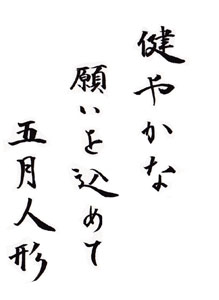 健やかな
願いを込めて
五月人形